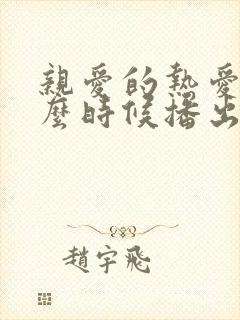 親愛的熱愛
麼時候播出
趙宇飛